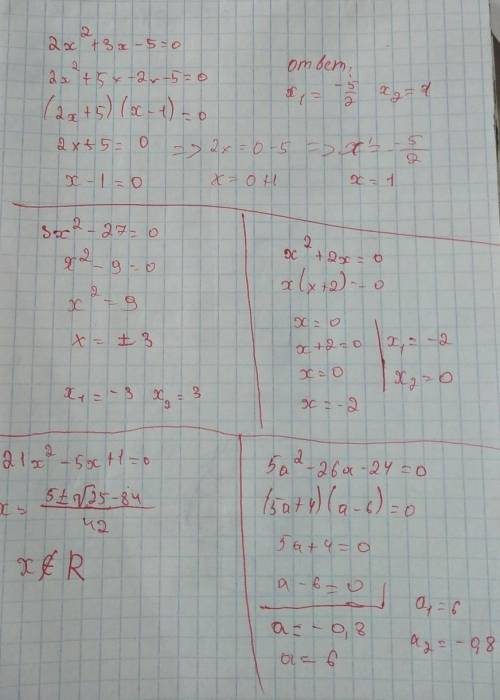 2x²+3x-5=0
2x²+5x-2x-5=0
(2x+5)(x-1)=0
2x+5=0 => 2x=0-5 => x=-5/2
x-1=0 x=0+1 x=1
ответ:
x₁=-5/2 x₂=1
3x²-27=0
x²-9=0
x²=9
x=±3
x₁=-3 x₂=3
x²+2x=0
x(x+2)=0
x=0
x+2=0
x=0
x=-2
x₁=-2
x₂=0
21x²-5x+1=0
x=(5±√25-84)/42
x∉R
5a²-26a-24=0
(5a+4)(a-6)=0
5a+4=0
a-6=0
a=-0,8
a=6
a₁=6
a₂=-0,8